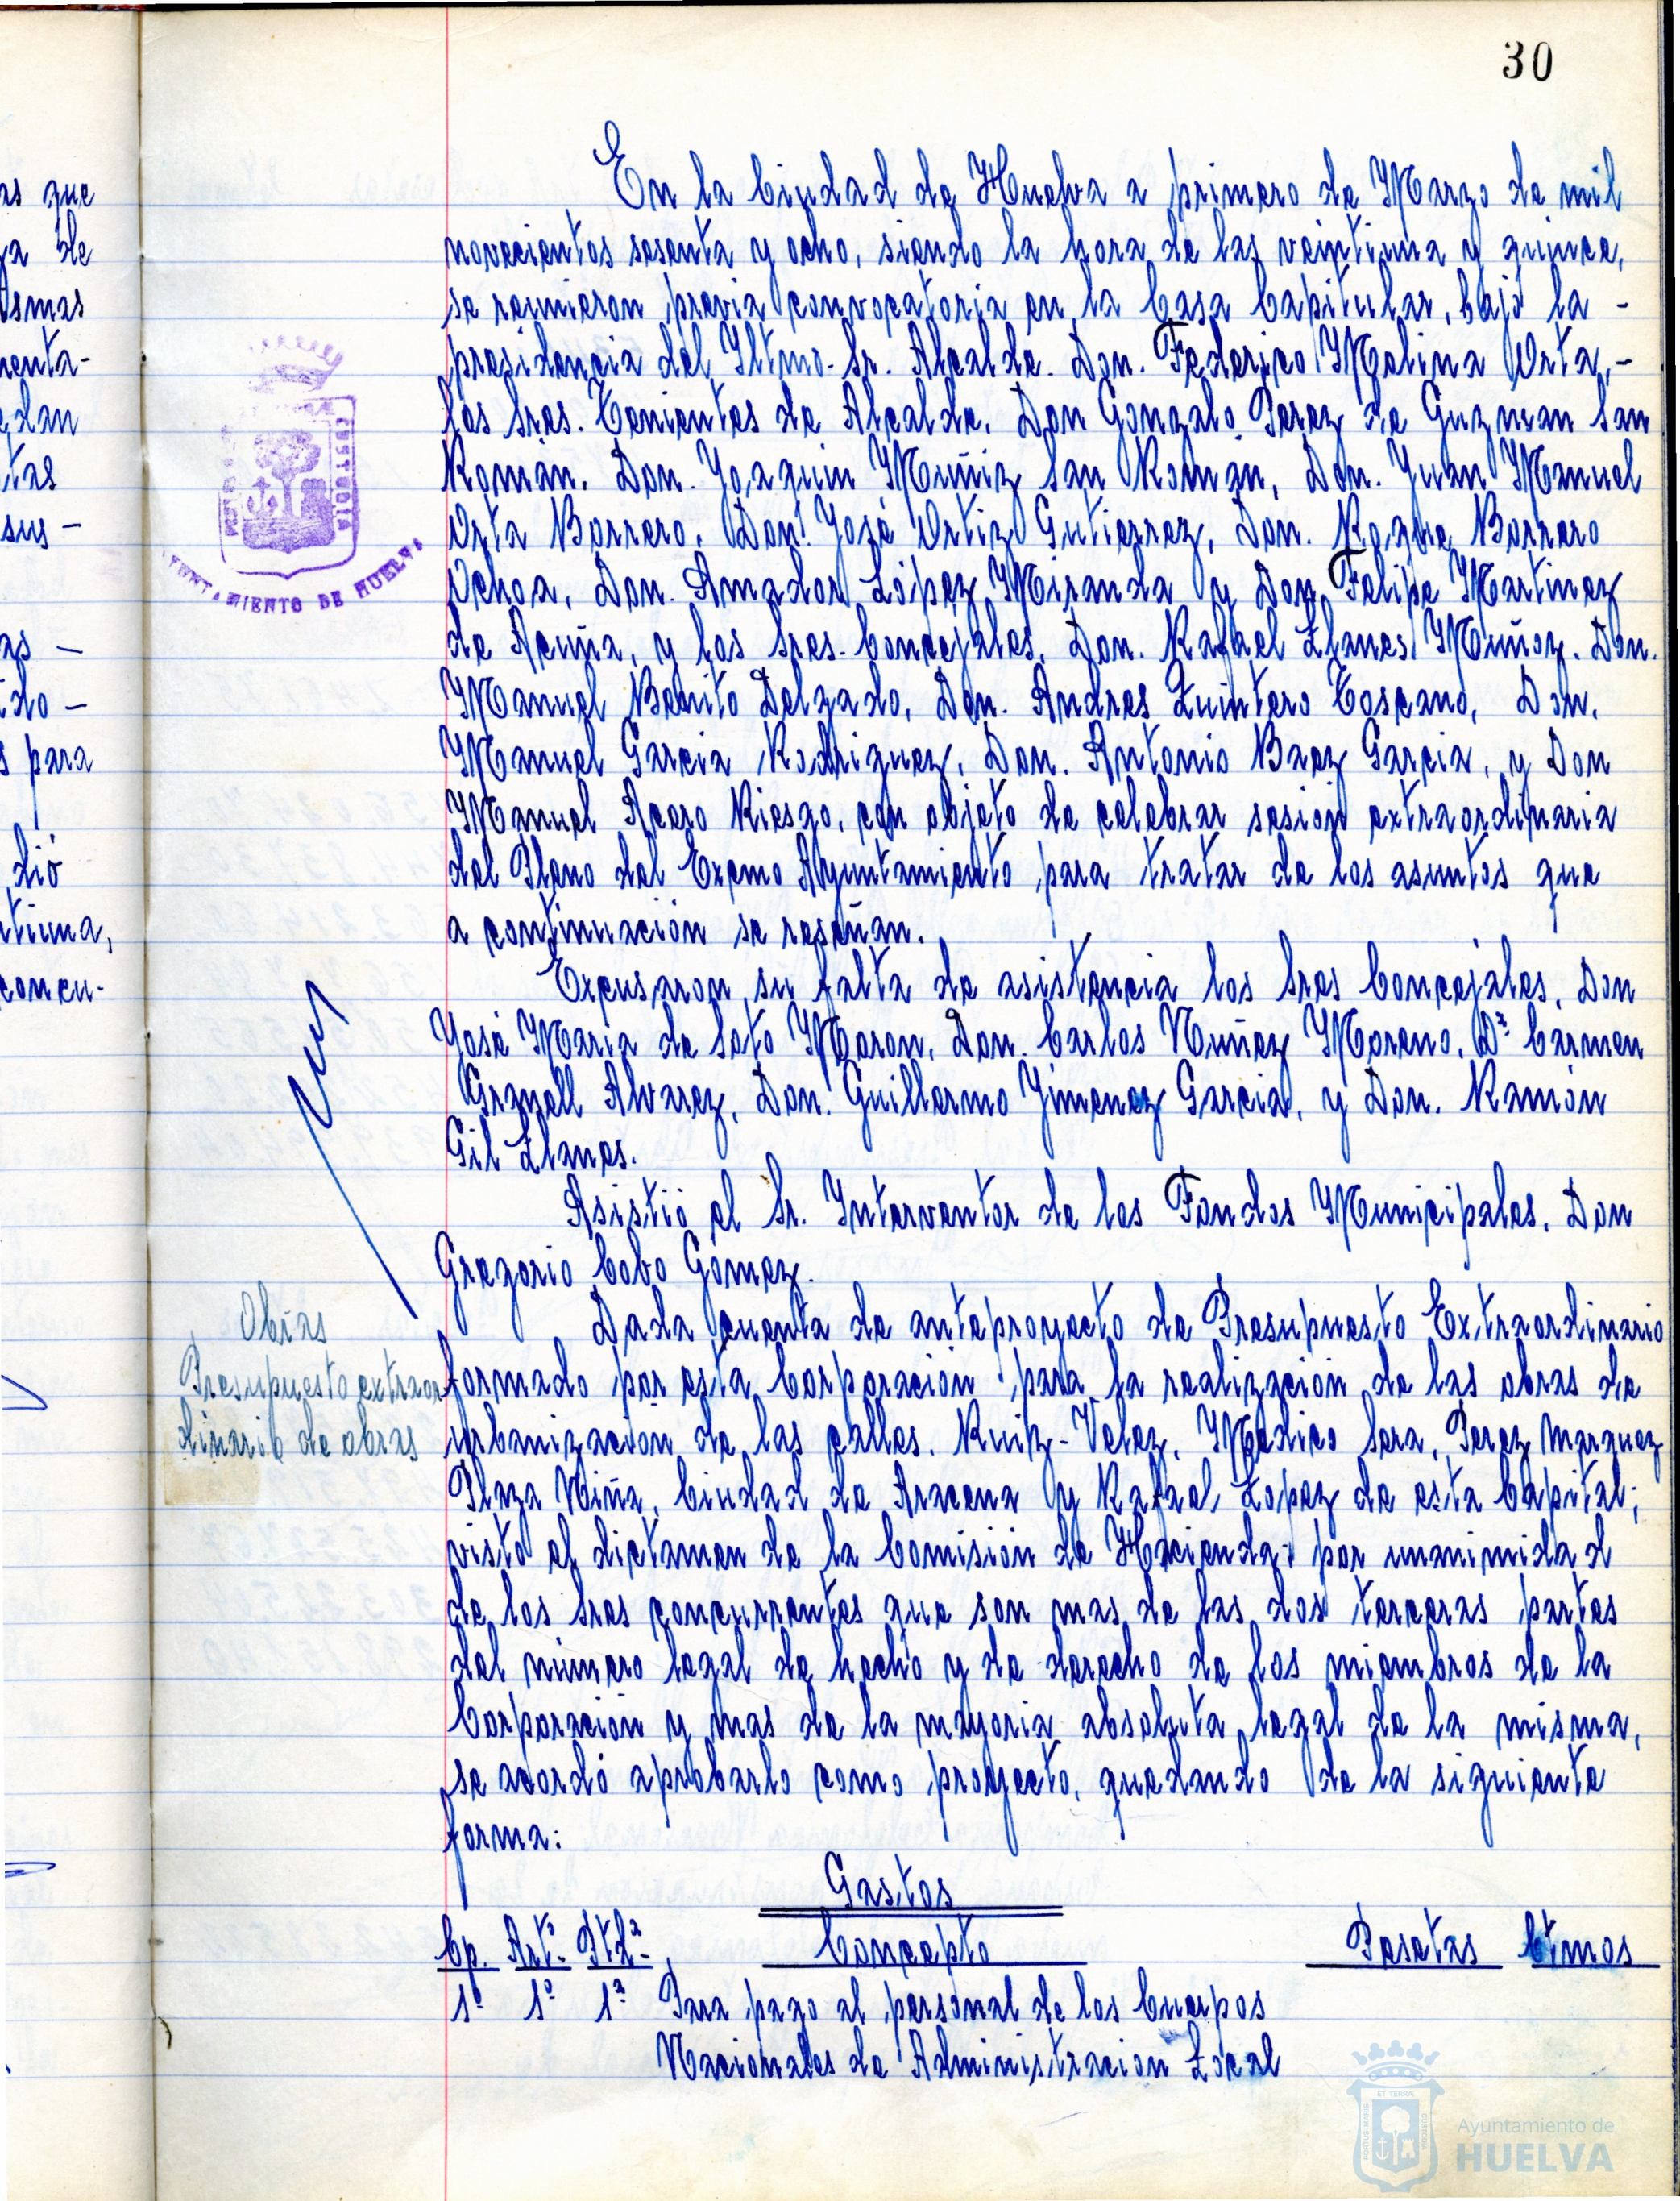 30
as que
ya de
ismas
menta-
edan
tas
sus -
as -
ido -
s para
dió
ntiuna,
concu-
AYUNTAMIENTO DE HUELVA
En la Ciudad de Huelva a primero de Marzo de mil
novecientos sesenta y ocho, siendo la hora de las veintiuna y quince,
se reunieron previa convocatoria en la Casa Capitular, bajo la -
presidencia del Yltmo. Sr. Alcalde. Don. Federico Molina Orta, -
los Sres. Tenientes de Alcalde, Don Gonzalo Perez de Guzman San
Roman, Don. Joaquin Muñiz San Roman, Don. Juan Manuel
Orta Borrero, Don. José Ortiz Gutierrez, Don. Roque Borrero
Ochoa, Don. Amador López Miranda y Don Felipe Martinez
de Acuña, y los Sres. Concejales, Don. Rafael Llanes Muñoz. Don.
Manuel Benito Delgado, Don. Andres Quintero Toscano, Don.
Manuel Garcia Rodriguez, Don. Antonio Baez Garcia, y Don
Manuel Acero Riesgo, con objeto de celebrar sesión extraordinaria
del Pleno del Excmo Ayuntamiento para tratar de los asuntos que
a continuación se reseñan.
Excusaron su falta de asistencia los Sres Concejales, Don
José Maria de Soto Moron, Don. Carlos Nuñez Moreno, Dª Cármen
Granell Alvarez, Don. Guillermo Jimenez Garcia, y Don. Ramón
Gil Llanes.
Asistió el Sr. Interventor de los Fondos Municipales, Don
Gregorio Cobo Gómez.
Obras
Presupuesto extraor
dinario de obras
Dada cuenta de anteproyecto de Presupuesto Extraordinario
formado por esta Corporación para la realización de las obras de
urbanización de las calles. Ruiz-Velez, Médico Sera, Perez Marquez
Plaza Niña, Ciudad de Aracena y Rafael Lopez de esta Capital;
visto el dictamen de la Comisión de Hacienda; por unanimidad
de los Sres concurrentes que son mas de las dos terceras partes
del número legal de hecho y de derecho de los miembros de la
Corporación y mas de la mayoria absoluta legal de la misma,
se acordó aprobarlo como proyecto, quedando de la siguiente
forma:
Gastos
Cp. Artº. Ptdª. Concepto Pesetas Ctmos
1º 1º 1ª Para pago al personal de los Cuerpos
Nacionales de Administración Local
Ayuntamiento de
HUELVA